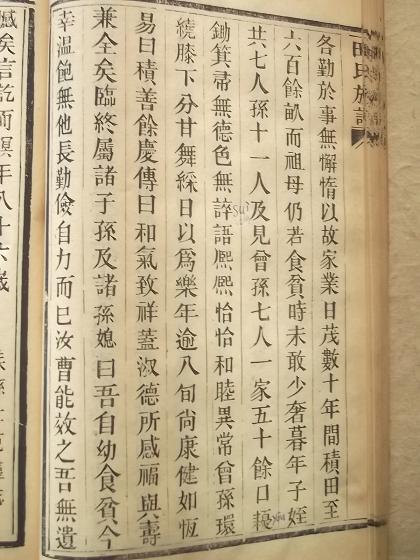 田氏族譜
各勤於事無懈惰以故家業日茂數十年間積田至
六百餘畝而祖母仍若食貧時未敢少奢暮年子姪
共七人孫十一人及見曾孫七人一家五十餘口耰
鋤箕帚無德色無誶語熈熈恰恰和睦異常曾孫環
繞膝下分甘舞綵日以為樂年逾八旬尚康健如恆
易曰積善餘慶傳曰和氣致祥蓋淑德所感福與壽
兼全矣臨終屬諸子孫及諸孫媳曰吾自幼食貧今
幸溫飽無他長勤儉自力而巳汝曹能效之吾無遺
憾矣言訖而瞑年八十六歲